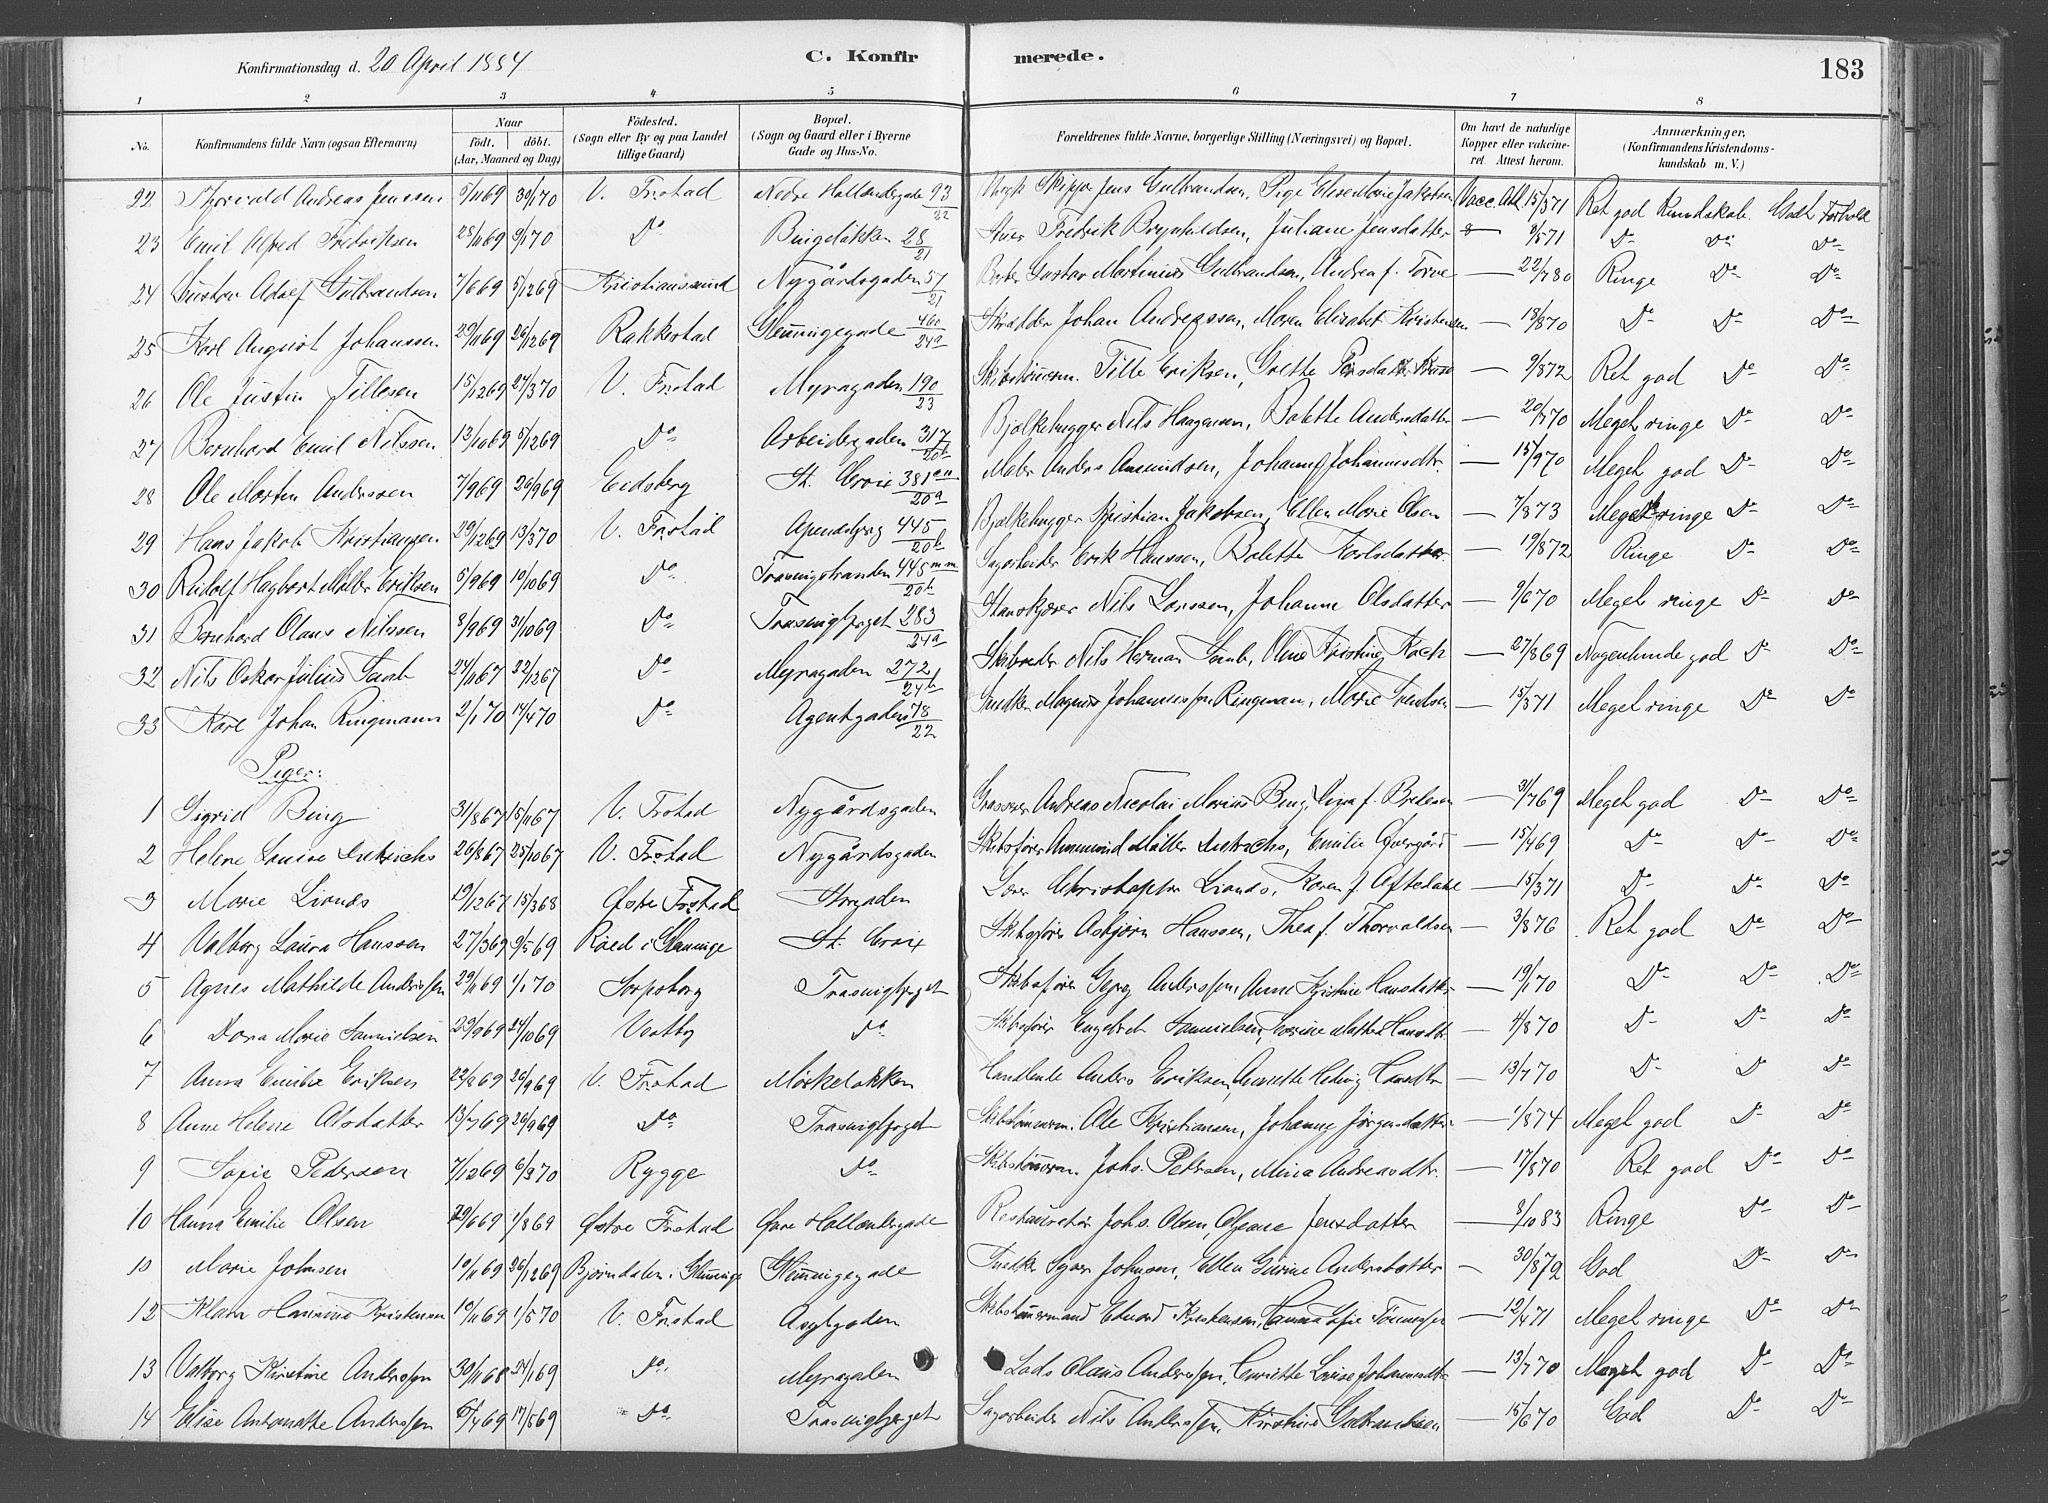 Konfirmationsdag d. 20 April 1884 C. Konfirmerede. 183
1 2 3 4 5 6 7 8
No. Konfirmandens fulde Navn (ogsaa Efternavn) Naar født. døbt. (Aar, Maaned og Dag) Fødested. (Sogn eller By og paa Landet tillige Gaard) Bopæl. (Sogn og Gaard eller i Byerne Gade og Hus-No. Forældrenes fulde Navne, borgerlige Stilling (Næringsvei) og Bopæl. Om havt de naturlige Kopper eller vaccineret. Attest herom. Anmærkninger. (Konfirmandens Kristendomskundskab m. V.)
22 Thorvald Andreas Jenssen 5/1169 30/170 V. Frstad Nedre Hollendergade 93/22 Skipper Jens Gulbrandsen, Pige Else Marie Jakobsen Vacc. Att. 15/571 Ret god Kundskab. Godt Forhold
23 Emil Alfred Fredriksen 28/1169 9/170 Do Bingeløkken 28/21 Fredrik Brynhildsen, Juliane Jensdatter 8/571 Do Do Do
24 Gustav Adolf Gulbrandsen 7/669 5/1269 Kristianssund Nygårdsgaden 51/21 Gustav Martinius Gulbrandsen, Andrea f. Torve — 22/780 Ringe Do Do
25 Karl August Johanssen 29/1169 26/1269 Rakkestad Glemmigegade 460/24a Skrædder Johan Andreassen, Maren Elisabet Kristensen — 18/870 Do Do Do
26 Ole Justin Tillesen 15/1269 27/370 V. Frstad Myragaden 190/23 Skibstømrm. Tille Eriksen, Grethe — 9/872 Ret god Do Do
27 Bernhard Emil Nilssen 13/1069 5/1269 Do Arbeidergaden 317/20b Bjælkehugger Nils Haagensen, Bolette Andersdatter — 20/770 Meget ringe Do Do
28 Ole Martin Anderssen 7/969 26/969 Eidsberg St. Croix 381an/20a Maler Anders Amundsen, Johanne Johannesdtr. — 15/970 Meget god Do Do
29 Hans Jakob Kristianssen 29/1269 13/370 V. Frstad Apenesbjerg 445/20b Bjælkehugger Kristian Jakobsen, Ellen Marie Olsen — 7/873 Meget ringe Do Do
30 Rudolf Hagbart Møller Eriksen 5/969 10/1069 Do Trosvigstranden 445mm/20b Sagarbeider Erik Hanssen, Bolette Karlsdatter — 19/872 Ringe Do Do
31 Bernhard Olaus Nilssen 8/969 31/1069 Do Trosvigbjerget 283/24a Nils Larssen, Johanne Olsdatter — 9/670 Meget ringe Do Do
32 Nils Oskar Julius Saab 24/1167 22/1267 Do Myragaden 272/24b Skibsreder Nils Herman Saab, Oline Kristine Koch — 27/869 Nogenlunde god Do Do
33 Karl Johan Ringmann 2/170 17/470 Do Agentgaden 78/22 Snedker Magnus Johannessen Ringman, Marie — 15/371 Meget ringe Do Do
Piger:
1 Sigrid Bing 31/867 15/1167 V. Frstad Nygårdsgaden Grosserer Andreas Nicolai Marius Bing, — 31/769 Meget god Do Do
2 Helene Louise Dietrichs 26/867 25/1067 V. Frstad Nygårdsgaden Skibsfører Ammund Møller Dietrichs, Emilie Øvergård — 15/469 Do Do Do
3 Marie Lionds 19/1267 15/368 Østre Frstad Storgaden Christopher Lionds, Karen f. Aftedahl — 15/371 Do Do Do
4 Valborg Laura Hanssen 27/369 9/569 Røed i Glemmige St. Croix Skibsfører Asbjørn Hanssen, Thea f. Thorvaldsen 3/876 Ret god Do Do
5 Agnes Mathilde Anderssen 29/1169 1/170 Sarpsborg Trosvigbjerget Skibsfører Georg Anderssen, Anne Kristine Hansdatter — 19/170 Do Do Do
6 Dora Marie Samuelsen 29/969 24/1069 Vestby Do Skibsfører Engebret Samuelsen, Hansdtr. — 4/870 Do Do Do
7 Anna Emilie Eriksen 22/869 26/969 V. Frstad Mørkeløkken Handlende Anders Eriksen, Annette Hedvig Hansdtr — 13/770 Do Do Do
8 Anne Helene Olsdatter 13/769 26/969 Do Trosvigbjerget Skibstømrm. Ole Kristiansen, Johanne Jørgensdatter — 1/874 Meget god Do Do
9 Sofie Pedersen 7/1269 6/370 Rygge Do Skibstømrm. Johs. Petersen, Mina Andreasdtr. — 17/870 Ret god Do Do
10 Hanna Emilie Olsen 29/669 1/869 Østre Frstad Øvre Hollendergade Restauratør Johs. Olsen, Jensdatter — 8/1083 Ringe Do Do
11 Marie Johnsen 10/1169 26/1269 Bjørndalen i Glemmige Glemmigegade Snedker Johnsen, Ellen Gurine Andersdatter — 30/872 God Do Do
12 Klara Hannine Kristensen 10/1169 1/570 V. Frstad Asylgaden Skibstømmermand Edvard Kristensen, Hanna Sofie Tønnessen — 12/471 Meget ringe Do Do
13 Valborg Kristine Anderssen 30/1168 24/169 Do Myragaden Lods Olaus Anderssen, Henriette Lovise Johannesdtr. — 13/770 Meget god Do Do
14 Elise Antonette Anderssen 5/469 17/569 Do Trosvigbjerget Sagarbeider Nils Anderssen, Kirstine Gulbrandsen — 15/670 God Do Do